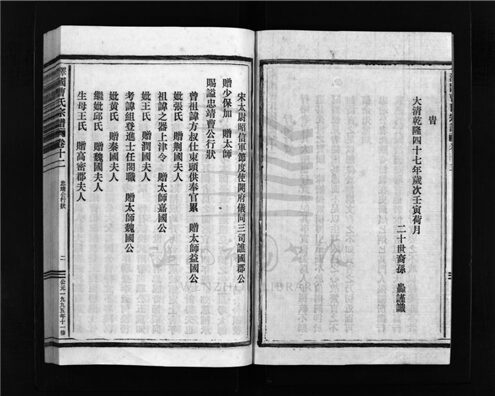 旹
大清乾隆四十七年歲次壬寅荷月
二十世裔孫 謹識
宋太尉昭信軍節度使開府儀同三司譙國郡公
贈少保加 贈太師
賜謚忠靖曹公行狀
曾祖諱方叔仕東頭供奉官累 贈太師益國公
妣張氏 贈荆國夫人
祖諱之器上津令 贈太師嘉國公
妣王氏 贈潤國夫人
考諱組登進士任閤職 贈太師魏國公
妣黄氏 贈秦國夫人
繼妣邱氏 贈魏國夫人
生母王氏 贈高密郡夫人
曹氏宗譜 卷十二 忠靖公行狀 二 公元一九九五年十一修
LIBRARY